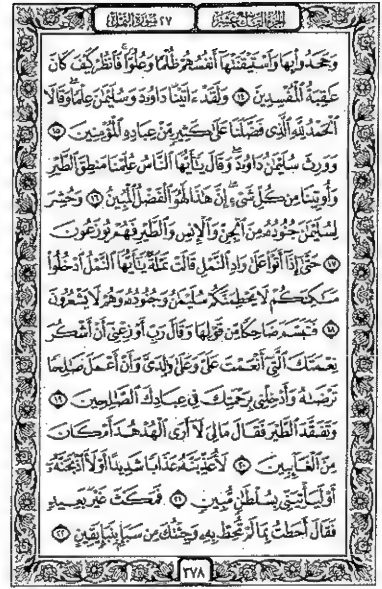 الجزء التاسع عشر ٢٧ سورة النمل
وَجَحَدُوا۟ بِهَا وَٱسْتَيْقَنَتْهَآ أَنفُسُهُمْ ظُلْمًا وَعُلُوًّا ۚ فَٱنظُرْ كَيْفَ كَانَ
عَٰقِبَةُ ٱلْمُفْسِدِينَ ١٤ وَلَقَدْ ءَاتَيْنَا دَاوُۥدَ وَسُلَيْمَٰنَ عِلْمًا ۖ وَقَالَا
ٱلْحَمْدُ لِلَّهِ ٱلَّذِى فَضَّلَنَا عَلَىٰ كَثِيرٍ مِّنْ عِبَادِهِ ٱلْمُؤْمِنِينَ ١٥
وَوَرِثَ سُلَيْمَٰنُ دَاوُۥدَ ۖ وَقَالَ يَٰٓأَيُّهَا ٱلنَّاسُ عُلِّمْنَا مَنطِقَ ٱلطَّيْرِ
وَأُوتِينَا مِن كُلِّ شَىْءٍ ۖ إِنَّ هَٰذَا لَهُوَ ٱلْفَضْلُ ٱلْمُبِينُ ١٦ وَحُشِرَ
لِسُلَيْمَٰنَ جُنُودُهُۥ مِنَ ٱلْجِنِّ وَٱلْإِنسِ وَٱلطَّيْرِ فَهُمْ يُوزَعُونَ
١٧ حَتَّىٰٓ إِذَآ أَتَوْا۟ عَلَىٰ وَادِ ٱلنَّمْلِ قَالَتْ نَمْلَةٌ يَٰٓأَيُّهَا ٱلنَّمْلُ ٱدْخُلُوا۟
مَسَٰكِنَكُمْ لَا يَحْطِمَنَّكُمْ سُلَيْمَٰنُ وَجُنُودُهُۥ وَهُمْ لَا يَشْعُرُونَ
١٨ فَتَبَسَّمَ ضَاحِكًا مِّن قَوْلِهَا وَقَالَ رَبِّ أَوْزِعْنِىٓ أَنْ أَشْكُرَ
نِعْمَتَكَ ٱلَّتِىٓ أَنْعَمْتَ عَلَىَّ وَعَلَىٰ وَٰلِدَىَّ وَأَنْ أَعْمَلَ صَٰلِحًا
تَرْضَىٰهُ وَأَدْخِلْنِى بِرَحْمَتِكَ فِى عِبَادِكَ ٱلصَّٰلِحِينَ ١٩
وَتَفَقَّدَ ٱلطَّيْرَ فَقَالَ مَا لِىَ لَآ أَرَى ٱلْهُدْهُدَ أَمْ كَانَ
مِنَ ٱلْغَآئِبِينَ ٢٠ لَأُعَذِّبَنَّهُۥ عَذَابًا شَدِيدًا أَوْ لَأَا۟ذْبَحَنَّهُۥٓ
أَوْ لَيَأْتِيَنِّى بِسُلْطَٰنٍ مُّبِينٍ ٢١ فَمَكَثَ غَيْرَ بَعِيدٍ
فَقَالَ أَحَطتُ بِمَا لَمْ تُحِطْ بِهِۦ وَجِئْتُكَ مِن سَبَإٍۭ بِنَبَإٍ يَقِينٍ ٢٢
٣٧٨